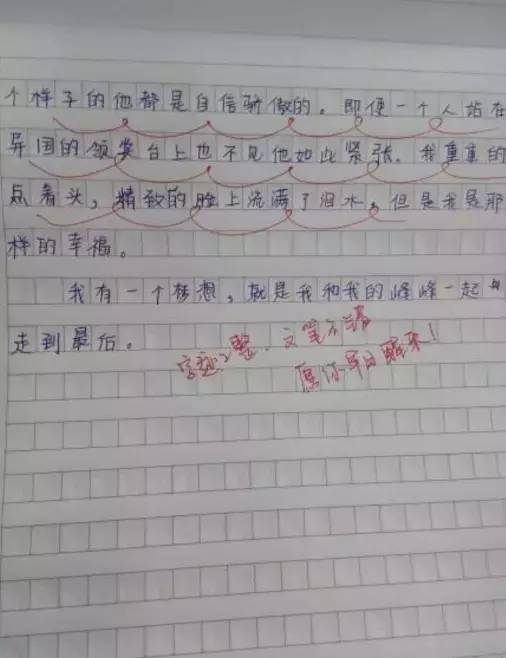 个样子的他都是自信骄傲的。即便一个人站在
异国的领奖台上也不见他如此紧张。我重重的
点着头，精致的脸上流满了泪水，但是我是那
样的幸福。
我有一个梦想，就是我和我的峰峰一起
走到最后。
字迹工整，文笔不错
愿你早日醒来！